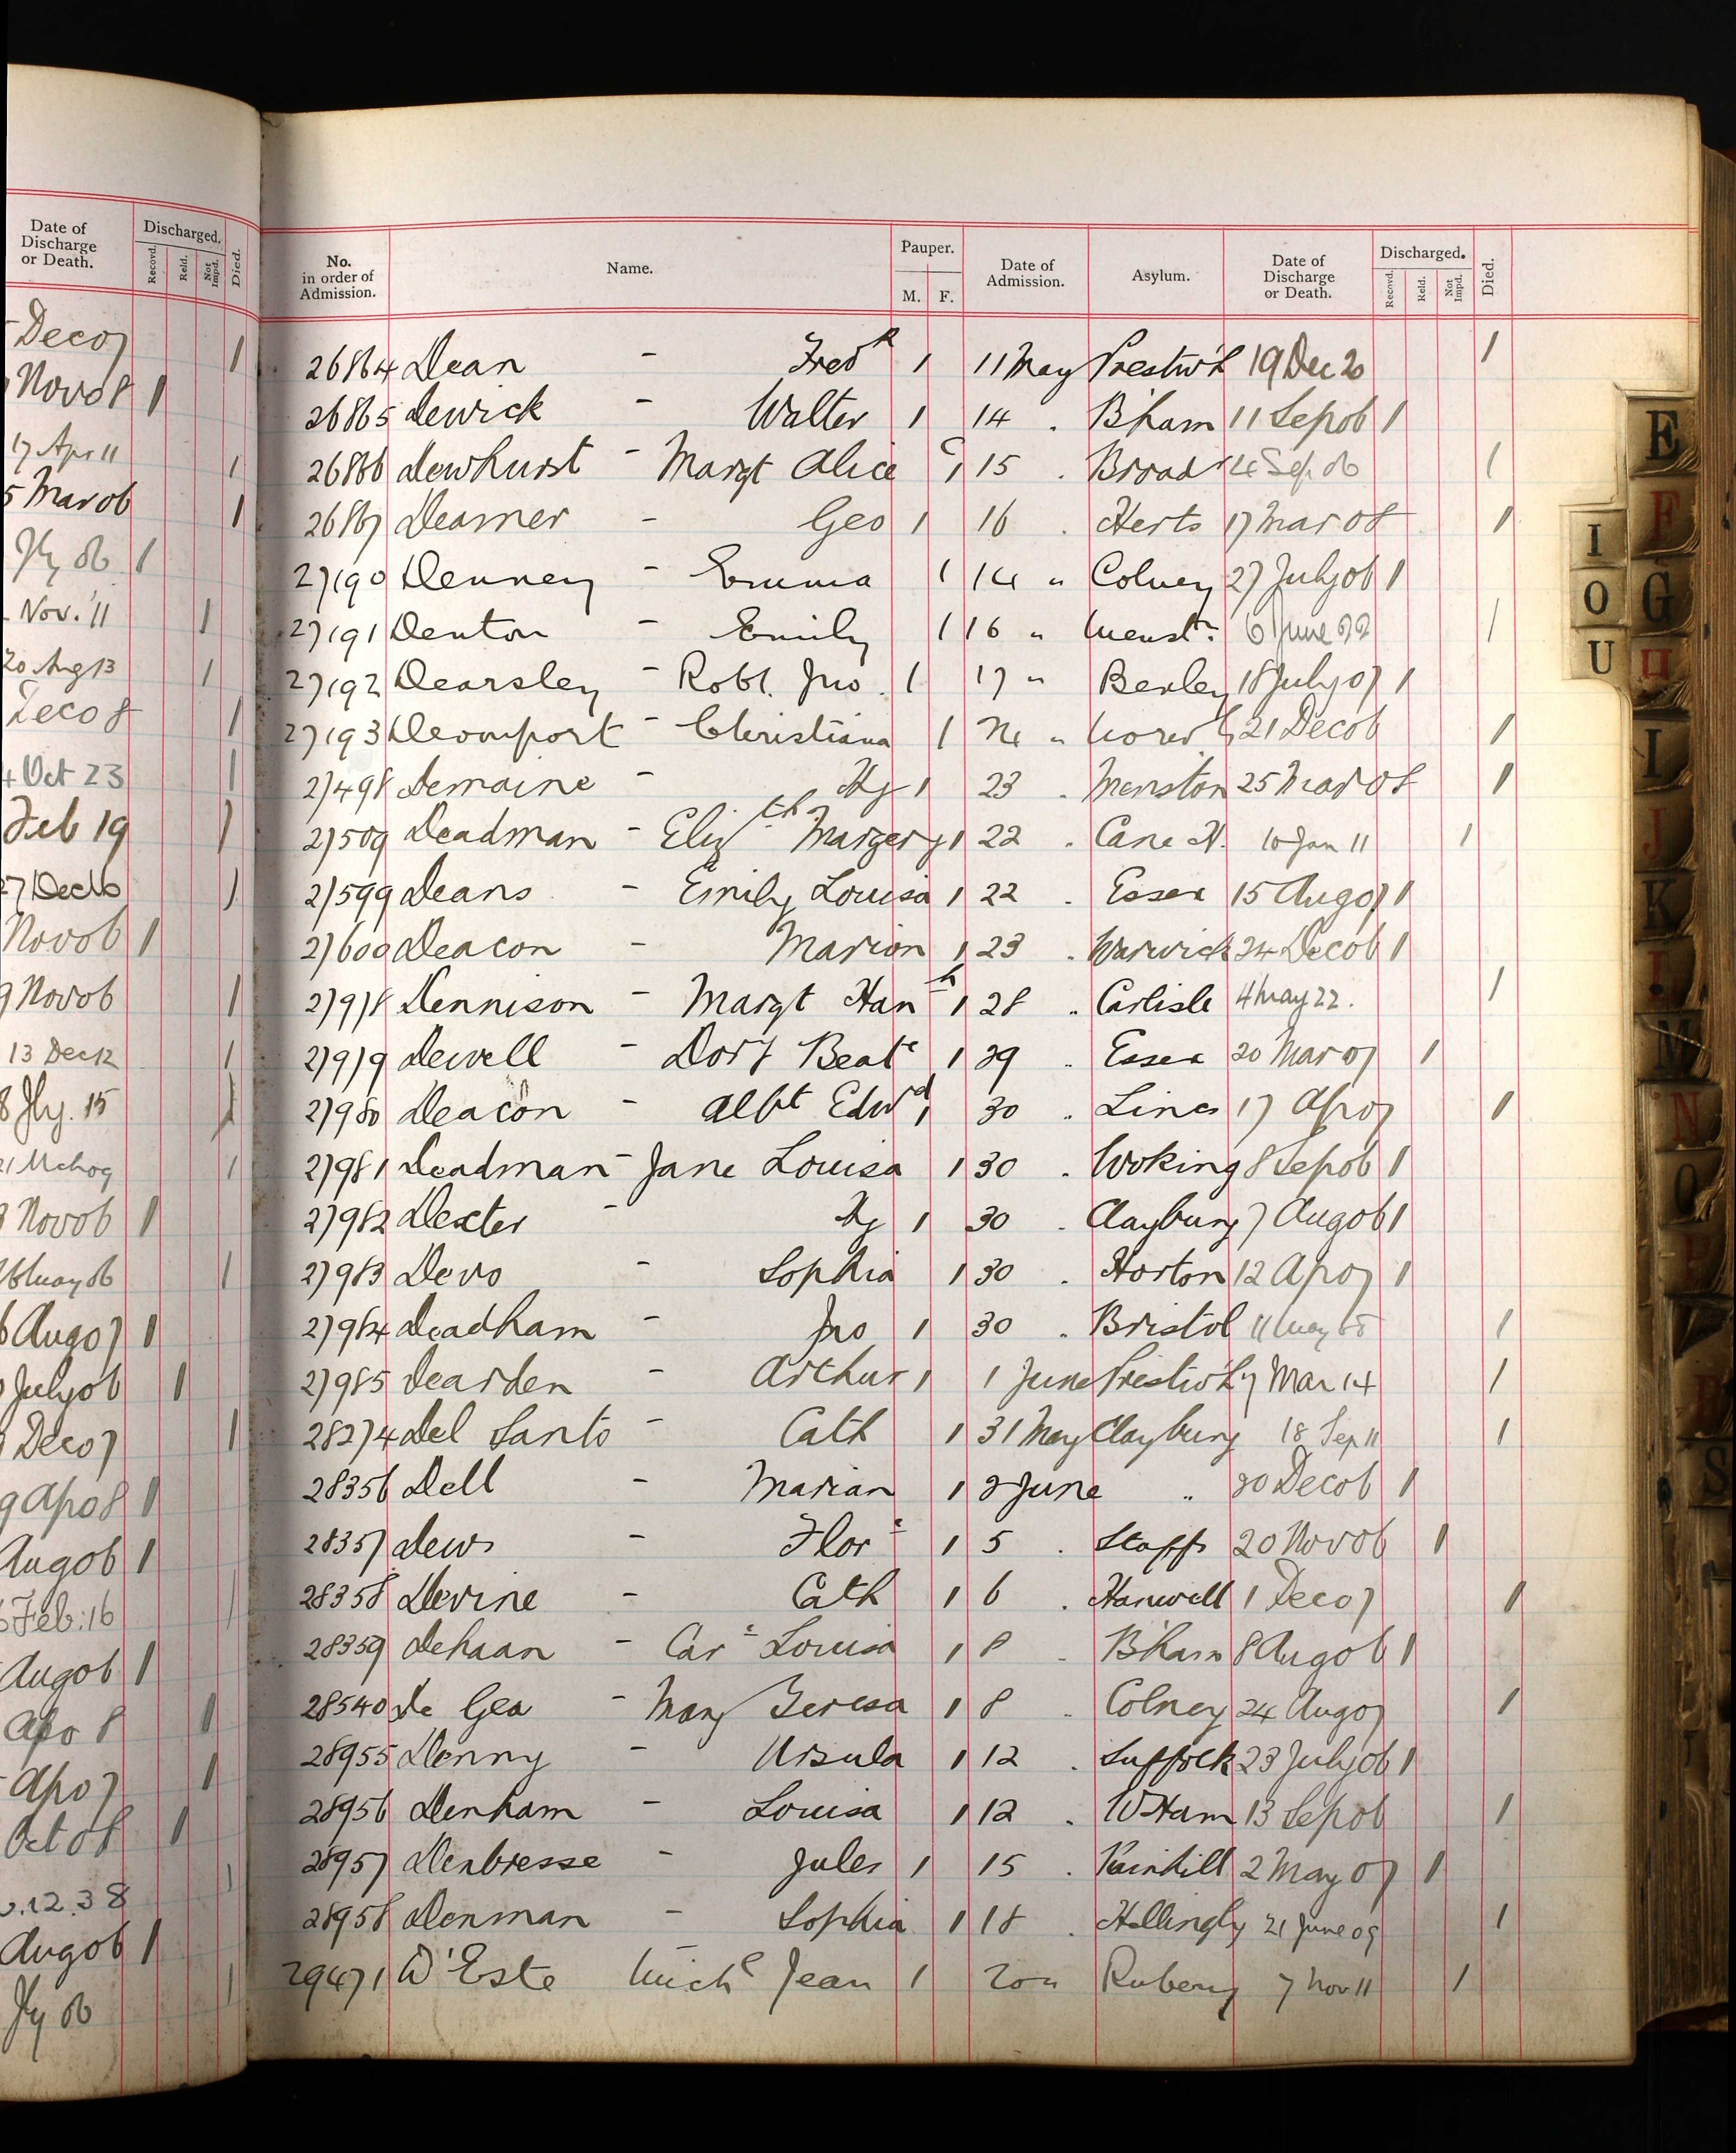 Date of Discharge or Death. Discharged. Recovd. Reld. Not Impd. Died.
Deco7 1
Novo8 1
17 Apr 11 1
5 Maro6 1
Jly 06 1
Nov. '11 1
20 Aug 13 1
Deco8 1
4 Oct 23 1
Feb 19 1
27 Dec16 1
Novo6 1
9 Novo6 1
13 Dec12 1
8 Jly. 15 1
21 Mcho9 1
Novo6 1
May 06 1
6 Augo7 1
Julyo6 1
Deco7 1
9 Apo8 1
Augo6 1
Feb: 16 1
Augo6 1
Apo8 1
Apo7 1
Octo8 1
12.38 1
Augo6 1
Jly 06 1
No. in order of Admission. Name. Pauper. M. F. Date of Admission. Asylum. Date of Discharge or Death. Discharged. Recovd. Reld. Not Impd. Died.
26864 Dean - Fredk 1 11 May Prestw'h 19 Dec 20 1
26865 Dewick - Walter 1 14 . B'ham 11 Sepo6 1
26866 Dewhurst - Margt Alice 1 15 . Broad 4 Sep 06 1
26867 Deamer - Geo 1 16 . Herts 17 Maro8 1
27190 Denney - Emma 1 14 " Colney 27 Julyo6 1
27191 Denton - Emily 1 16 " 6 June 1
27192 Dearsley - Robt. Jno. 1 17 " Bexley 18 Julyo7 1
27193 Devonport - Christiana 1 " 21 Deco6 1
27498 Demaine - Hy 1 23 . Menston 25 Maro8 1
27509 Deadman - Elizth Margery 1 22 . Cane H. 10 Jan 11 1
27599 Deans - Emily Louisa 1 22 . Essex 15 Augo7 1
27600 Deacon - Marion 1 23 . Warwick 24 Deco6 1
27978 Dennison - Margt Hanh 1 28 . Carlisle 4 May 22. 1
27979 Dewell - Dory Beate 1 29 . Essex 20 Maro7 1
27980 Deacon - Albt Edwd 1 30 . Lincs 17 Apo7 1
27981 Deadman - Jane Louisa 1 30 . Woking 8 Sepo6 1
27982 Dexter - Hy 1 30 . Claybury 7 Augo6 1
27983 Devo - Sophia 1 30 . Horton 12 Apo7 1
27984 Deadham - Jno 1 30 . Bristol 11 May 08 1
27985 Dearden - Arthur 1 1 June Prestw'h 7 Mar 14 1
28274 Del Santo - Cath 1 31 May Claybury 18 Sep 11 1
28356 Dell - Marian 1 2 June " 30 Deco6 1
28357 Dews - Flore 1 5 . Staffs 20 Novo6 1
28358 Devine - Cath 1 6 . Hanwell 1 Deco7 1
28359 Dehaan - Care Louisa 1 8 . B'ham 8 Augo6 1
28540 De Gea - Mary Teresa 1 8 . Colney 24 Augo7 1
28955 Denny - Ursula 1 12 . Suffolk 23 Julyo6 1
28956 Denham - Louisa 1 12 . WHam 13 Sepo6 1
28957 Denbresse - Jules 1 15 . Rainhill 2 Mayo7 1
28958 Denman - Sophia 1 18 . Hellingly 21 June 09 1
29471 D'Este Miche Jean 1 20 " Rubery 7 Nov 11 1
E
F
G
H
I
J
K
L
M
N
O
P
R
S
I
O
U